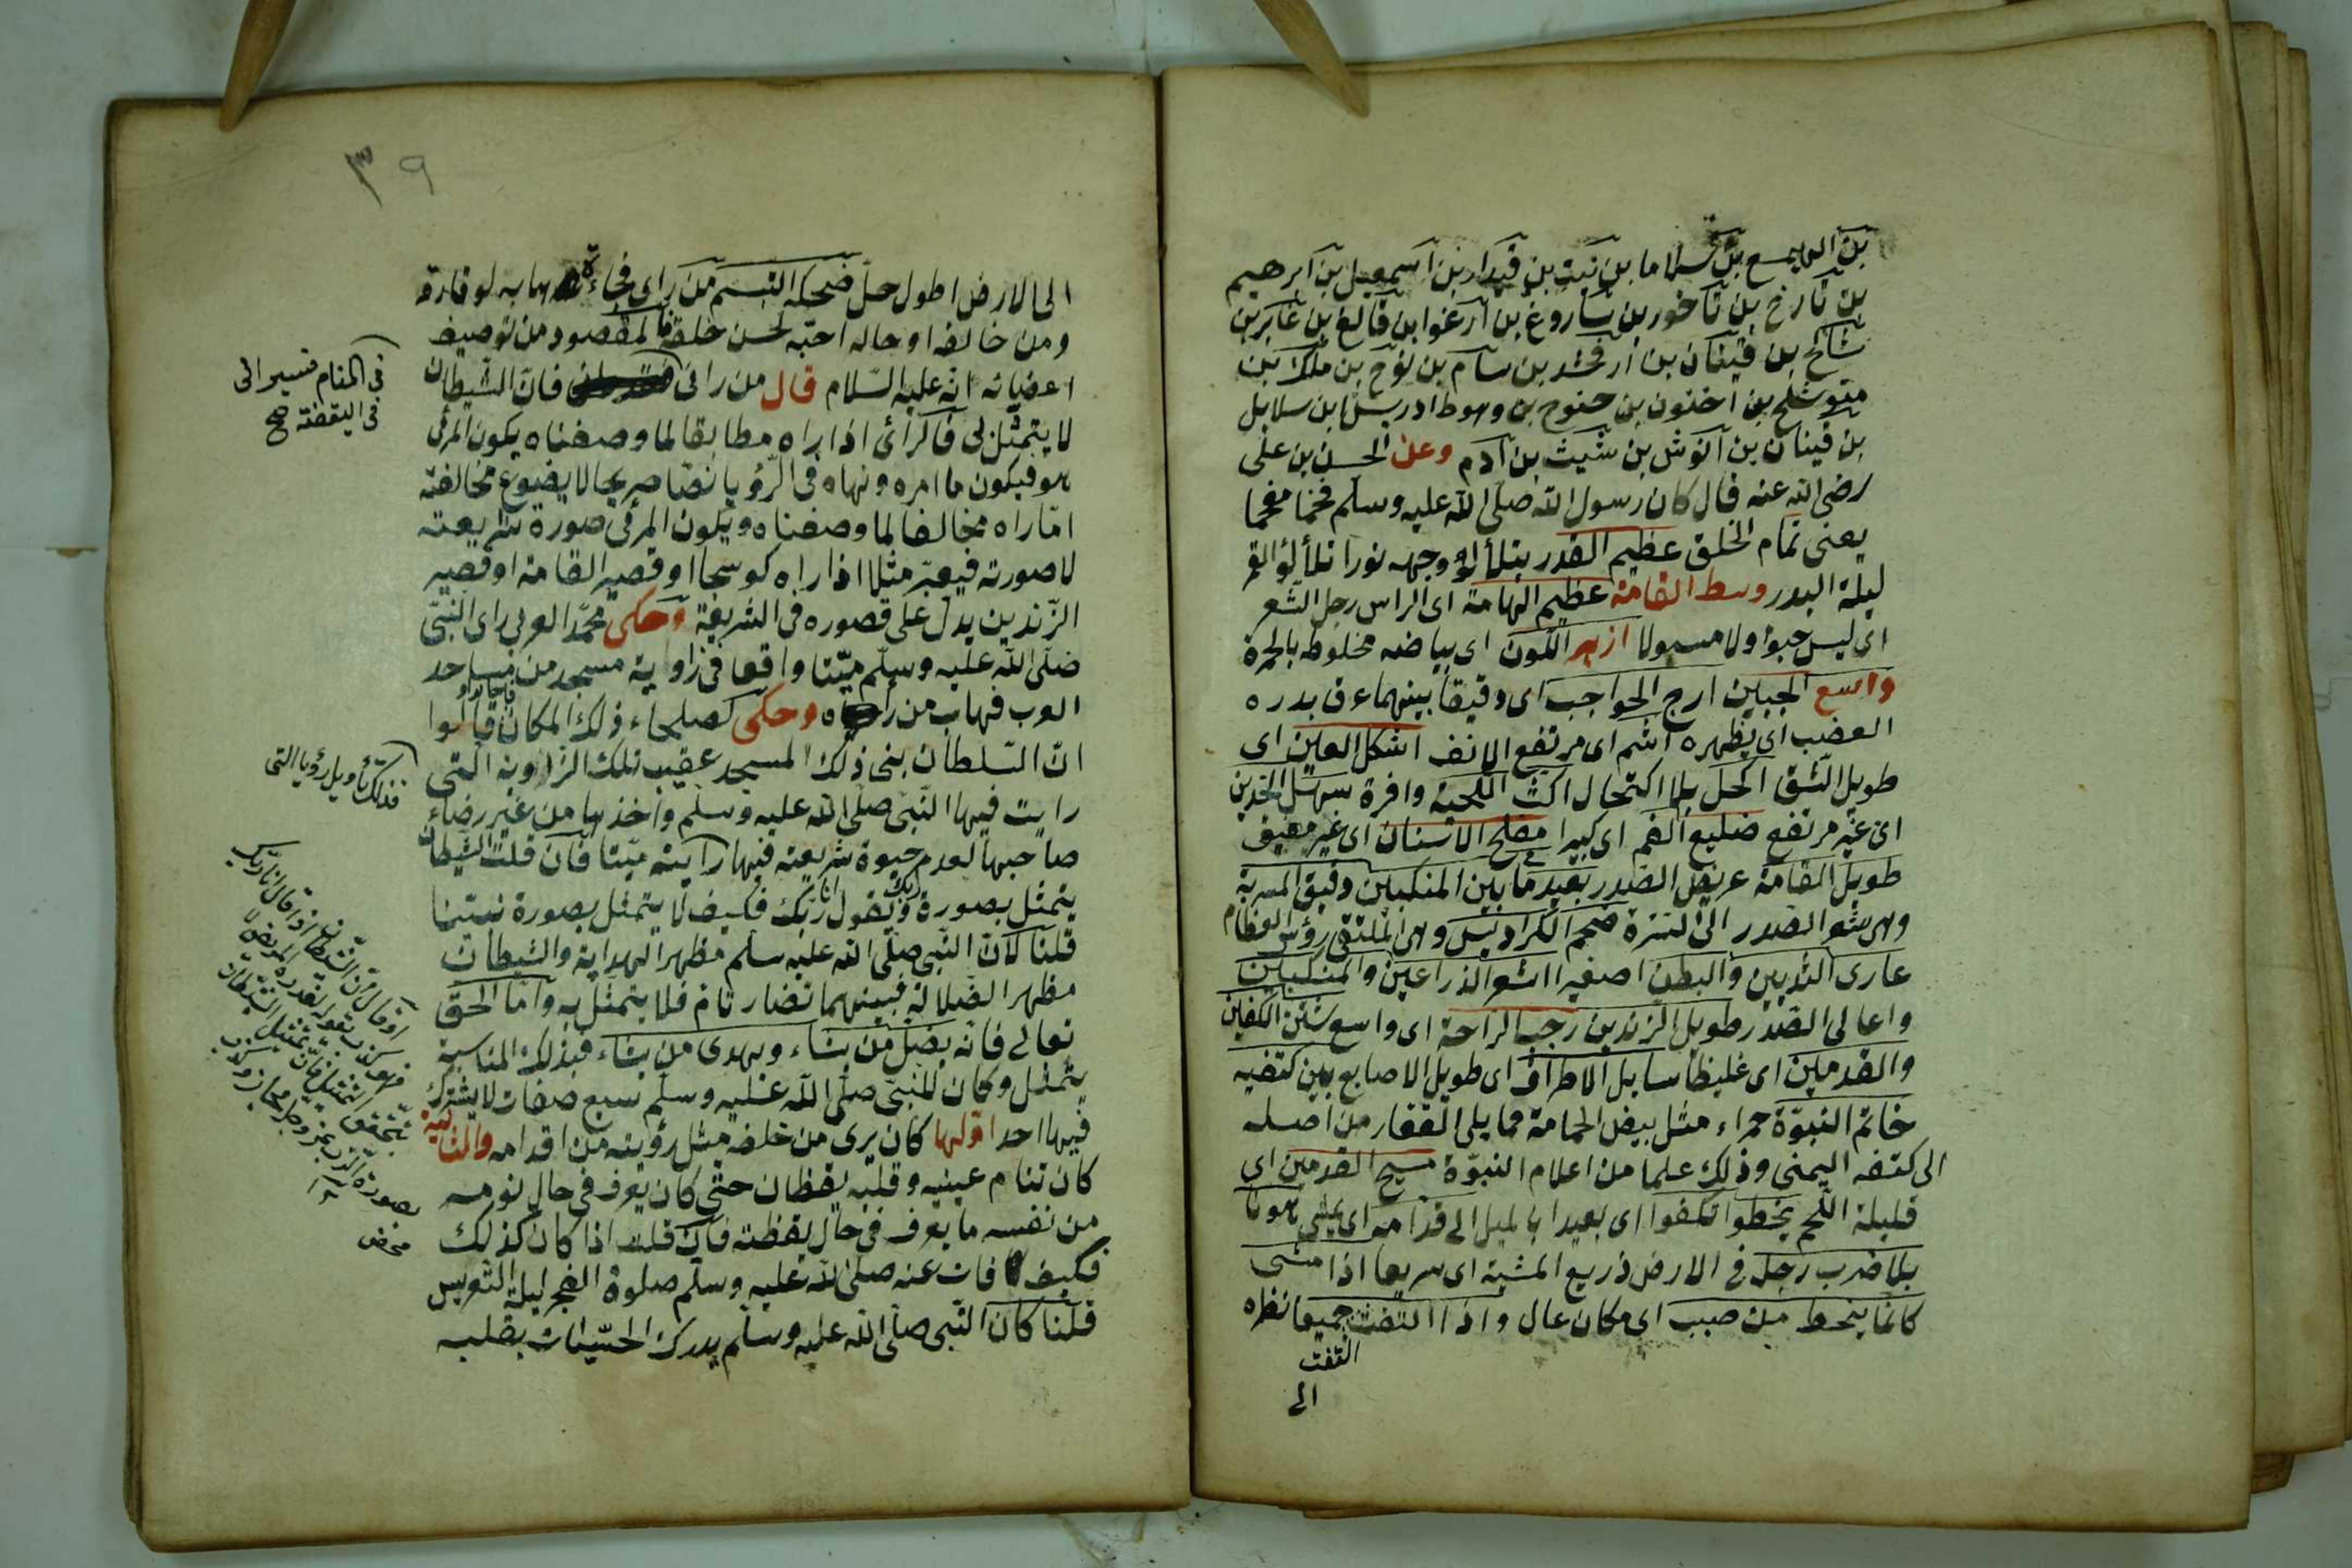 بن اليسع بن سلاما بن نبت بن قيدار بن اسمعيل بن ابرهيم
بن تارخ بن ناخور بن ساروغ بن ارغوا بن قالغ بن عابر بن
شالخ بن قينان بن ارفخشد بن سام بن نوح بن ملك بن
متوشلخ بن اخنون بن حنوح بن وهوط ادريس بن سلايل
بن قينان بن انوش بن شيث بن آدم وعن الحسن بن على
رضى الله عنه قال كان رسول الله صلى الله عليه وسلم فخما مفخما
يعنى تمام الخلق عظيم القدر يتلألؤ وجهه نورا تلألؤ القمر
ليلة البدر وسط القامة عظيم الهامة اى الراس رجل الشعر
اى ليس ولا مسبولا ازهر اللون اى بياضه مخلوطه بالحمرة
واسع الجبين ازج الحواجب اى دقيقا بينهما عرق يدره
الغضب اى يظهره اشم اى مرتفع الانف اشكل العين اى
طويل الشق اكحل بلا اكتحال اكث اللحية وافرة سهل الخدين
اى غير مرتفع ضليع الفم اى كبيرا مفلج الاسنان اى غير
طويل القامة عريض الصدر بعيد ما بين المنكبين دقيق المسربة
وهى شعر الصدر الى السرة ضخم الكراديس وهى ملتقى رؤس العظام
عارى الثديين والبطن اصفيه اشعر الذراعين والمنكبين
واعالى الصدر طويل الزندين رحب الراحة اى واسع شثن الكفين
والقدمين اى غليظا سايل الاطراف اى طويل الاصابع بين كتفيه
خاتم النبوة حمراء مثل بيض الحمامة مما يلى القفار من اصله
الى كتفه اليمنى وذلك علما من اعلام النبوة مسيح القدمين اى
قليلة اللحم يخطوا تكفوا اى بعيدا بالميل الى قدامه اى يمشى هونا
بلا ضرب رجله فى الارض ذريع المشية اى سريعا اذا مشى
كانما ينحط من صبب اى مكان عال واذا التفت جميعا نظره
التفت
الى
٣٩
الى الارض اطول جل ضحكه التبسم من راى فجاءة هابه لوقاره
ومن خالفه او حاله احبه لحسن خلقه فالمقصود من توصيف
اعضائه انه عليه السلام قال من رانى فان الشيطان
لا يتمثل بى فالرائى اذا راه مطابقا لما وصفناه يكون المرئى
هو فيكون ما امره ونهاه فى الرؤيا نصا صريحا لا يضيوع مخالفته
اما راه مخالفا لما وصفناه ويكون المرئى صورة شريعته
لا صورته فيعبر مثلا اذا راه كوسجا او قصير القامة او قصير
الزندين يدل على قصوره فى الشريعة وحكى محمد العربى راى النبى
صلى الله عليه وسلم ميتا واقعا فى زاوية مسجد من مساجد
العرب فهاب من راه وحكى لصلحاء ذلك المكان قالوا
ان السلطان بنى ذلك المسجد عقيب تلك الزاوية التى
رايت فيها النبى صلى الله عليه وسلم واخذها من غير رضاء
صاحبها لعدم حيوة شريعته فيها رايته ميتا فان قلت الشيطان
يتمثل بصورة ربك ويقول انا ربك فكيف لا يتمثل بصورة نبينا
قلنا كان النبى صلى الله عليه سلم مظهر الهداية والشيطان
مظهر الضلالة فبينهما تضار تام فلا يتمثل به واما الحق
تعالى فانه يضل من يشاء ويهدى من يشاء فبذلك المناسبة
يتمثل وكان للنبى صلى الله عليه وسلم سبع صفات لا يشترك
فيها احد اولها كان يرى من خلفه مثل رؤيته من اقدامه والثانية
كان تنام عينيه وقلبه يقظان حتى كان يعرف فى حال نومه
من نفسه ما يعرف فى حال يقظته فان قلت اذا كان كذلك
فكيف فات عنه صلى الله عليه وسلم صلوة الفجر ليلة التعريس
قلنا كان النبى صلى الله عليه وسلم يدرك الحسيات بقلبه
فى المنام فسيرانى
فى اليقضة صح
فذلك تأويل رؤيا التى